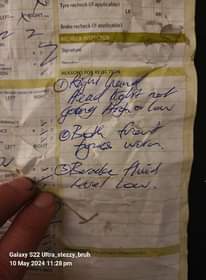 Tyre recheck (if applicable)
Brake recheck (if applicable)
RECHECK INSPECTION
Signature
REASONS FOR REJECTION
① Right hand
Head light not
going High or low
② Both front
tyres worn.
③ Brake fluid
level low.
LEFT
RIGHT
LEFT
Galaxy S22 Ultra_stezzy_bruh
10 May 2024 11:28 pm